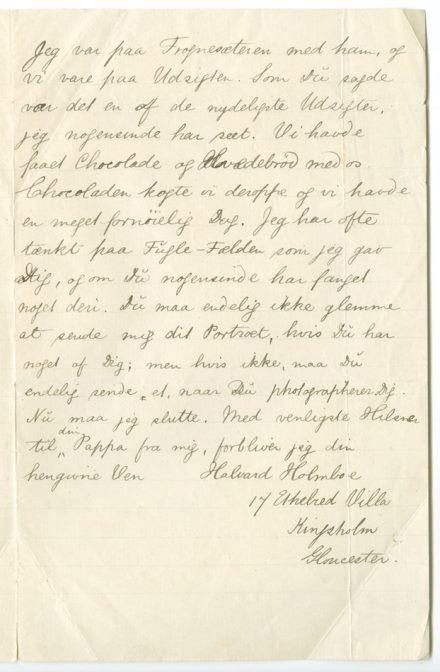 Jeg var paa Frognesæteren med ham, og
vi vare paa Udsigten. Som Dŭ sagde
var det en af de nydeligste Udsigter,
jeg nogensinde har seet. Vi havde
faaet Chocolade og Hvedebrød med os.
Chocoladen kogte vi deroppe og vi havde
en meget fornøielig Dag. Jeg har ofte
tænkt paa Fŭgle-Fælden som jeg gav
Dig, og om Dŭ nogensinde har fanget
noget deri. Dŭ maa endelig ikke glemme
at sende mig dit Portræt, hvis Dŭ har
noget af Dig; men hvis ikke, maa Dŭ
endelig sende et, naar Dŭ photographerer Dig.
Nŭ maa jeg slutte. Med venligste Hilsner
til din Pappa fra mig, forbliver jeg din
hengivne Ven Halvard Holmboe
17 Ethelred Villa
Kingsholm
Gloucester.